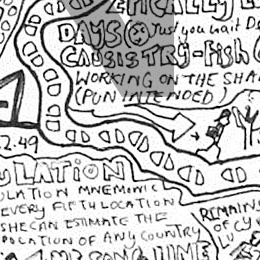 DAYS Just you wait D
CAUSISTRY-Fish
WORKING ON THE SHA
(PUN INTENDED
2.49
ULATION
ULATION MNEMONIC
EVERY FIFTH LOCATION
SHE CAN ESTIMATE THE
LOCATION OF ANY COUNTRY
REMAINS
OF CY
LU
SONG TIME